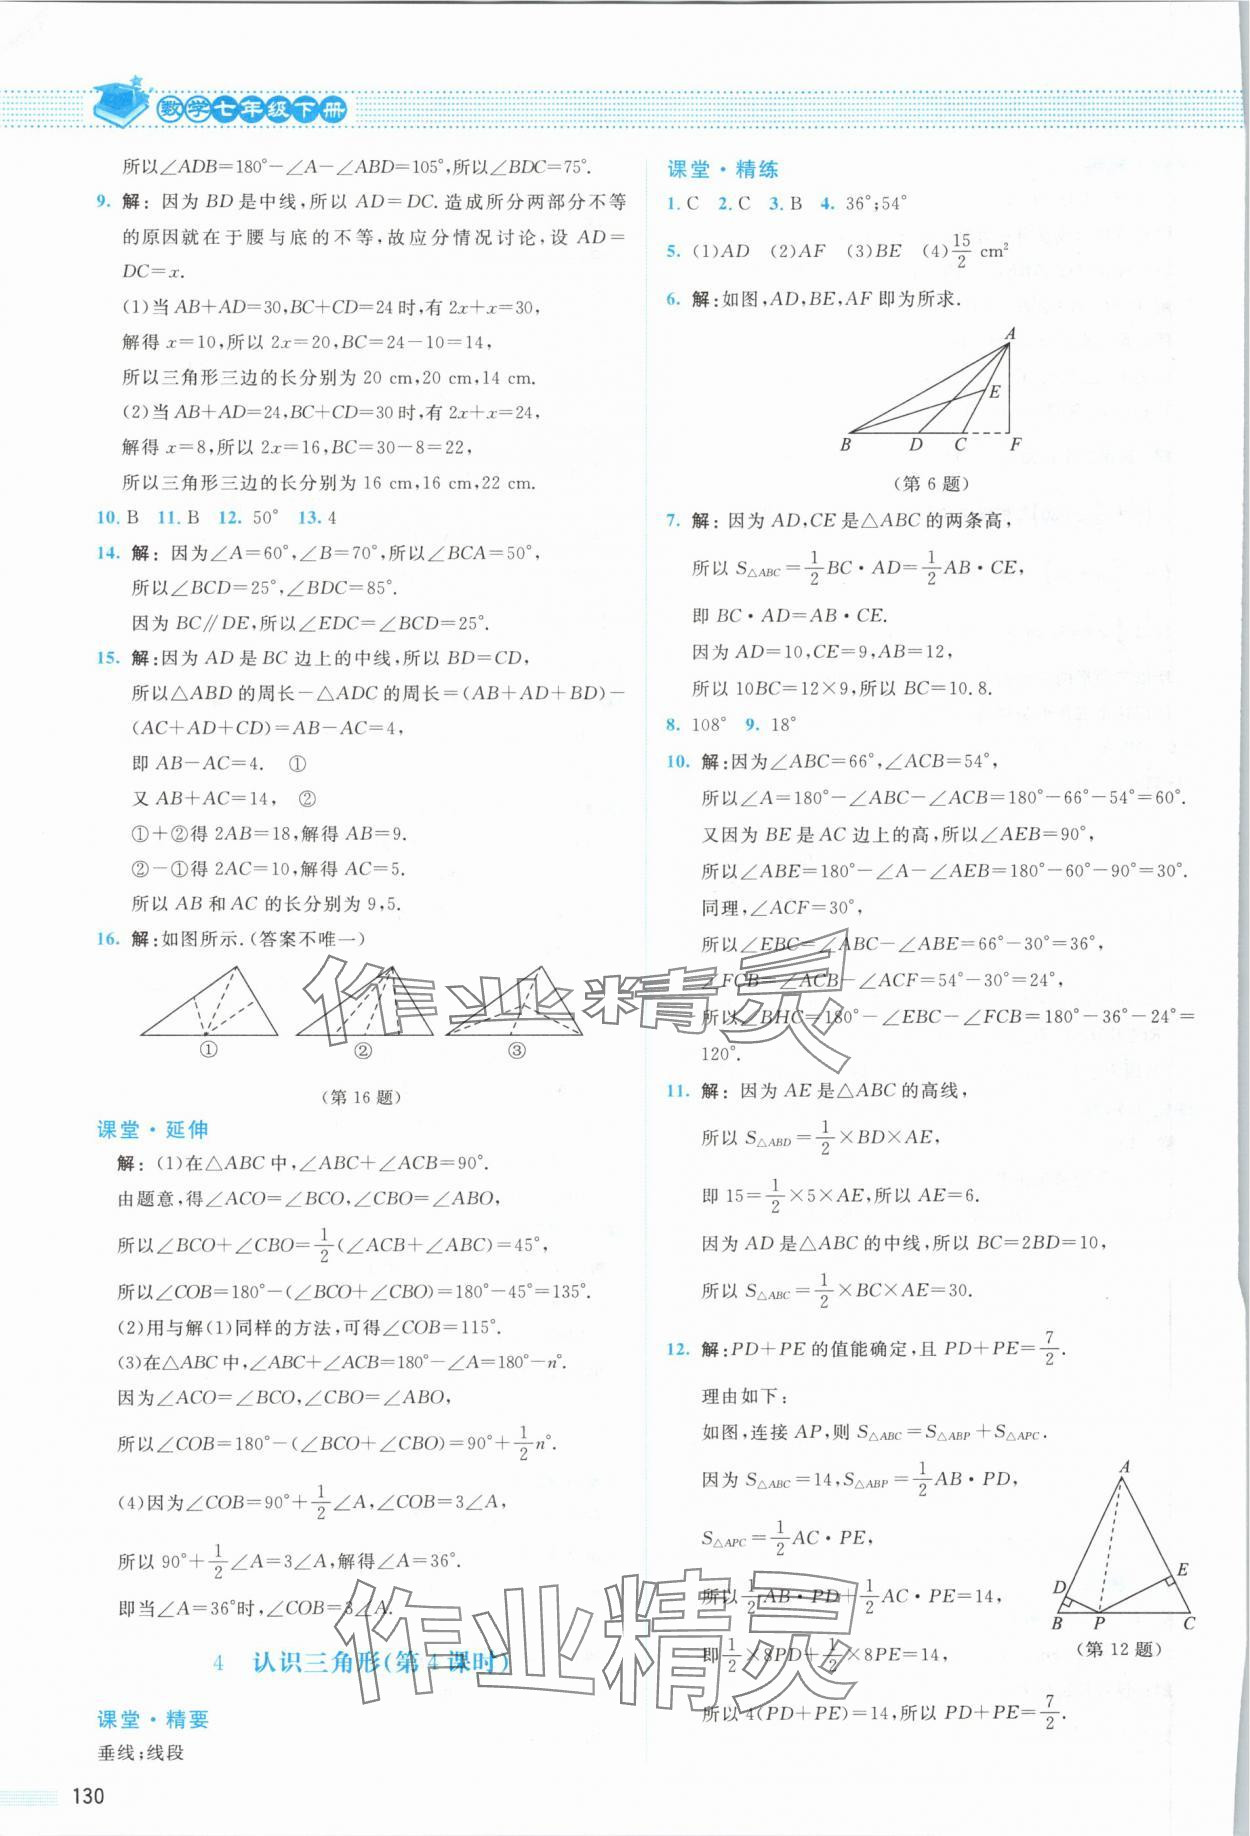 数学七年级下册
所以∠ADB=180°-∠A-∠ABD=105°,所以∠BDC=75°.
9. 解: 因为BD是中线,所以AD=DC.造成所分两部分不等
的原因就在于腰与底的不等,故应分情况讨论,设AD=
DC=x.
(1)当AB+AD=30,BC+CD=24时,有2x+x=30,
解得x=10,所以2x=20,BC=24-10=14,
所以三角形三边的长分别为20 cm,20 cm,14 cm.
(2)当AB+AD=24,BC+CD=30时,有2x+x=24,
解得x=8,所以2x=16,BC=30-8=22,
所以三角形三边的长分别为16 cm,16 cm,22 cm.
10. B 11. B 12. 50° 13. 4
14. 解: 因为∠A=60°,∠B=70°,所以∠BCA=50°,
所以∠BCD=25°,∠BDC=85°.
因为BC∥DE,所以∠EDC=∠BCD=25°.
15. 解:因为AD是BC边上的中线,所以BD=CD,
所以△ABD的周长-△ADC的周长=(AB+AD+BD)-
(AC+AD+CD)=AB-AC=4,
即AB-AC=4. ①
又AB+AC=14, ②
①+②得2AB=18,解得AB=9.
②-①得2AC=10,解得AC=5.
所以AB和AC的长分别为9,5.
16. 解:如图所示.(答案不唯一)
① ② ③
(第16题)
课堂·延伸
解: (1)在△ABC中,∠ABC+∠ACB=90°.
由题意,得∠ACO=∠BCO,∠CBO=∠ABO,
所以∠BCO+∠CBO=1/2(∠ACB+∠ABC)=45°,
所以∠COB=180°-(∠BCO+∠CBO)=180°-45°=135°.
(2)用与解(1)同样的方法,可得∠COB=115°.
(3)在△ABC中,∠ABC+∠ACB=180°-∠A=180°-n°.
因为∠ACO=∠BCO,∠CBO=∠ABO,
所以∠COB=180°-(∠BCO+∠CBO)=90°+1/2n°.
(4)因为∠COB=90°+1/2∠A,∠COB=3∠A,
所以90°+1/2∠A=3∠A,解得∠A=36°.
即当∠A=36°时,∠COB=3∠A.
4 认识三角形(第4课时)
课堂·精要
垂线;线段
130
课堂·精练
1. C 2. C 3. B 4. 36°;54°
5. (1)AD (2)AF (3)BE (4)15/2 cm²
6. 解:如图,AD,BE,AF即为所求.
A
E
B D C F
(第6题)
7. 解: 因为AD,CE是△ABC的两条高,
所以S△ABC=1/2BC·AD=1/2AB·CE,
即BC·AD=AB·CE.
因为AD=10,CE=9,AB=12,
所以10BC=12×9,所以BC=10.8.
8. 108° 9. 18°
10. 解:因为∠ABC=66°,∠ACB=54°,
所以∠A=180°-∠ABC-∠ACB=180°-66°-54°=60°.
又因为BE是AC边上的高,所以∠AEB=90°,
所以∠ABE=180°-∠A-∠AEB=180°-60°-90°=30°.
同理,∠ACF=30°,
所以∠EBC=∠ABC-∠ABE=66°-30°=36°,
∠FCB=∠ACB-∠ACF=54°-30°=24°,
所以∠BHC=180°-∠EBC-∠FCB=180°-36°-24°=
120°.
11. 解: 因为AE是△ABC的高线,
所以S△ABD=1/2×BD×AE,
即15=1/2×5×AE,所以AE=6.
因为AD是△ABC的中线,所以BC=2BD=10,
所以S△ABC=1/2×BC×AE=30.
12. 解:PD+PE的值能确定,且PD+PE=7/2.
理由如下:
如图,连接AP,则S△ABC=S△ABP+S△APC.
因为S△ABC=14,S△ABP=1/2AB·PD,
S△APC=1/2AC·PE,
所以1/2AB·PD+1/2AC·PE=14,
即1/2×8PD+1/2×8PE=14,
所以4(PD+PE)=14,所以PD+PE=7/2.
A
E
D
B P C
(第12题)
作业精灵
作业精灵